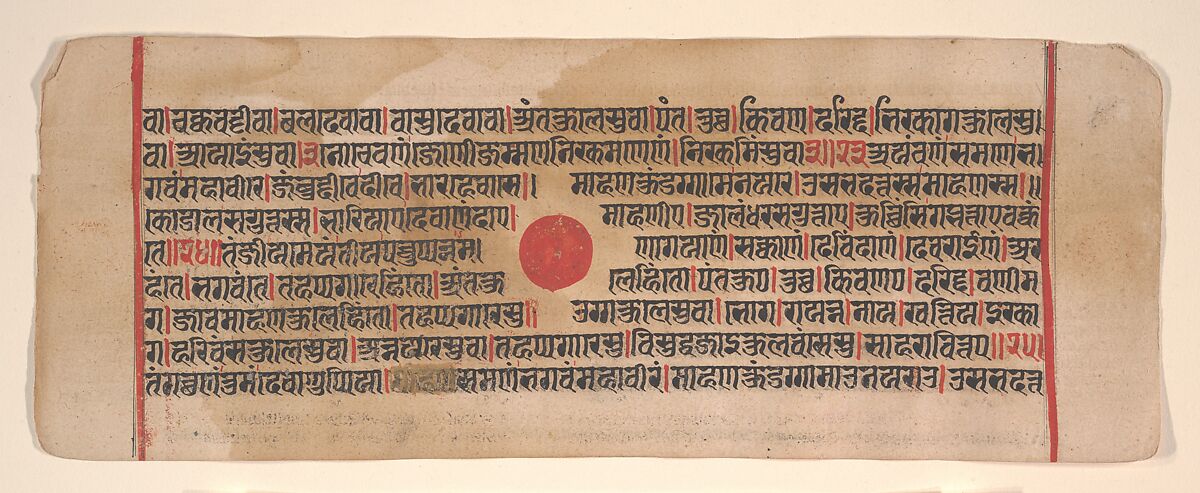 वा।चक्कवट्टीवा।बलदेवावा।वासुदेवावा।अंतकुलेसुवा।पंत।तुच्छ।किवण।दरिद्द।भिरकागकुलेसु
वा।आयाइंसुवा।३नोचेवणंजोणीजम्मणनिरकमणेणं।निरकमिंसुवा३॥२३अयंचणंसमणेभ
गवंमहावीरे।जंबुद्दीवेदीवे।भारहेवासे। माहणकुंडग्गामेनयरे।उसभदत्तस्समाहणस्स॥
कोडालसगुत्तस्स।भारियाएदेवाणंदाए। माहणीए।जालंधरसगुत्ताए।कुच्छिंसिगब्भत्ताएवक्कं
ते॥२४॥तंजीयमेयंतीयपच्चुप्पन्नम। णागयाणं।सक्काणं।देविंदाणं।देवराईणं।अर
हंते।भगवंते।तहप्पगारेहिंतो।अंतकु लेहिंतो।पंतकुए।तुच्छ।किवणए।दरिद्द।वणीम
ग।जावमाहणकुलेहिंतो।तहप्पगारेसु॥ उग्गकुलेसुवा।भोग।रायन्न।नाय।खत्तिय।इरका
ग।हरिवंसकुलेसुवा।अन्नयरेसुवा।तहप्पगारेसु।विसुद्धजाइकुलवंसेसु।साहरावित्तए॥२५।
तंगच्छणंतुमंदेवाणुप्पिया।समणंभगवंमहावीरं।माहणकुंडग्गामाउनयराउ।उसभदत्त